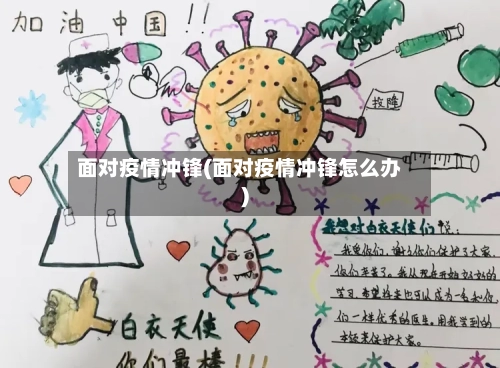 加油中国!!
投降
面对疫情冲锋(面对疫情冲锋怎么办
)
我想对白衣天使们说:
我爱你们,谢谢你们保护了大家,
你们辛苦了。我从现在开始好好的
学习,希望将来也可以成为一名和你
们一样优秀的医生,用我学到的
本领来保护大家。
白衣天使
你们最棒!!!